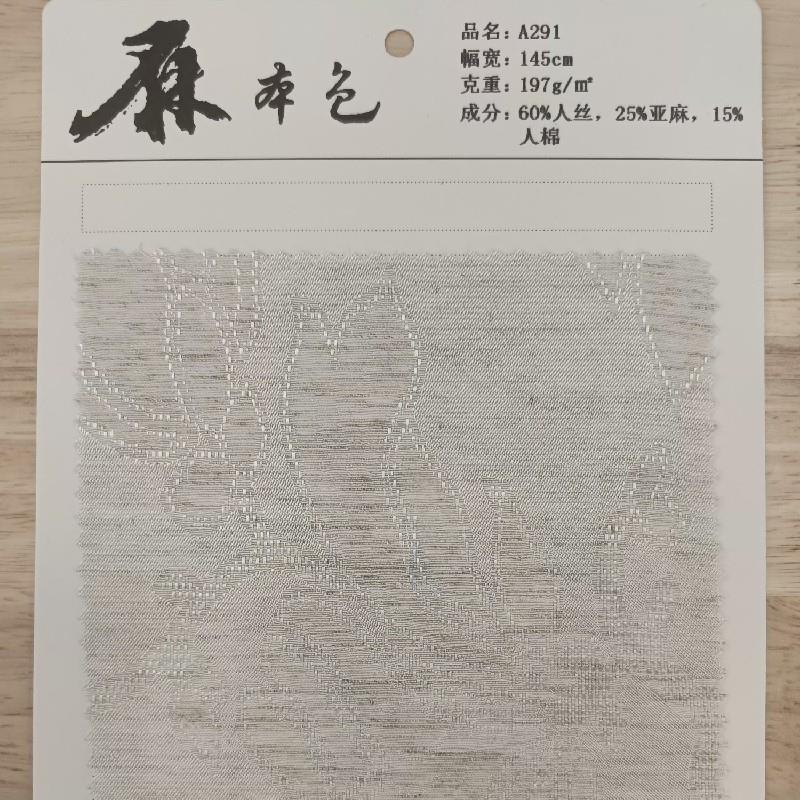 麻本色
品名：A291
幅宽：145cm
克重：197g/㎡
成分：60%人丝，25%亚麻，15%
人棉